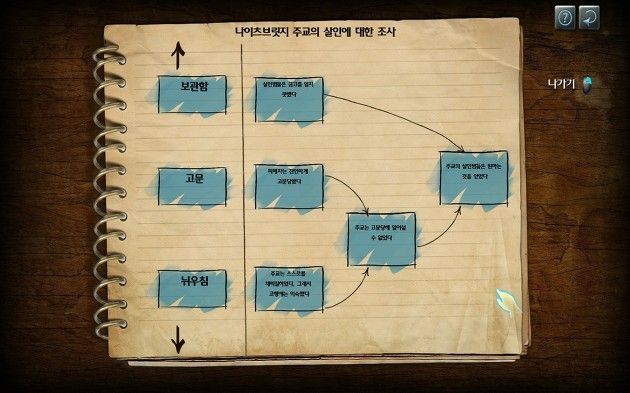 나이츠브릿지 주교의 살인에 대한 조사
나가기
보관함
살인범들은 금고를 열지
못했다
주교의 살인범들은 원하는
것을 얻었다
고문
피해자는 잔인하게
고문당했다
주교는 고문당해 일어설
수 없었다
뉘우침
주교는 스스로를
채찍질하였다. 그래서
고행에는 익숙했다